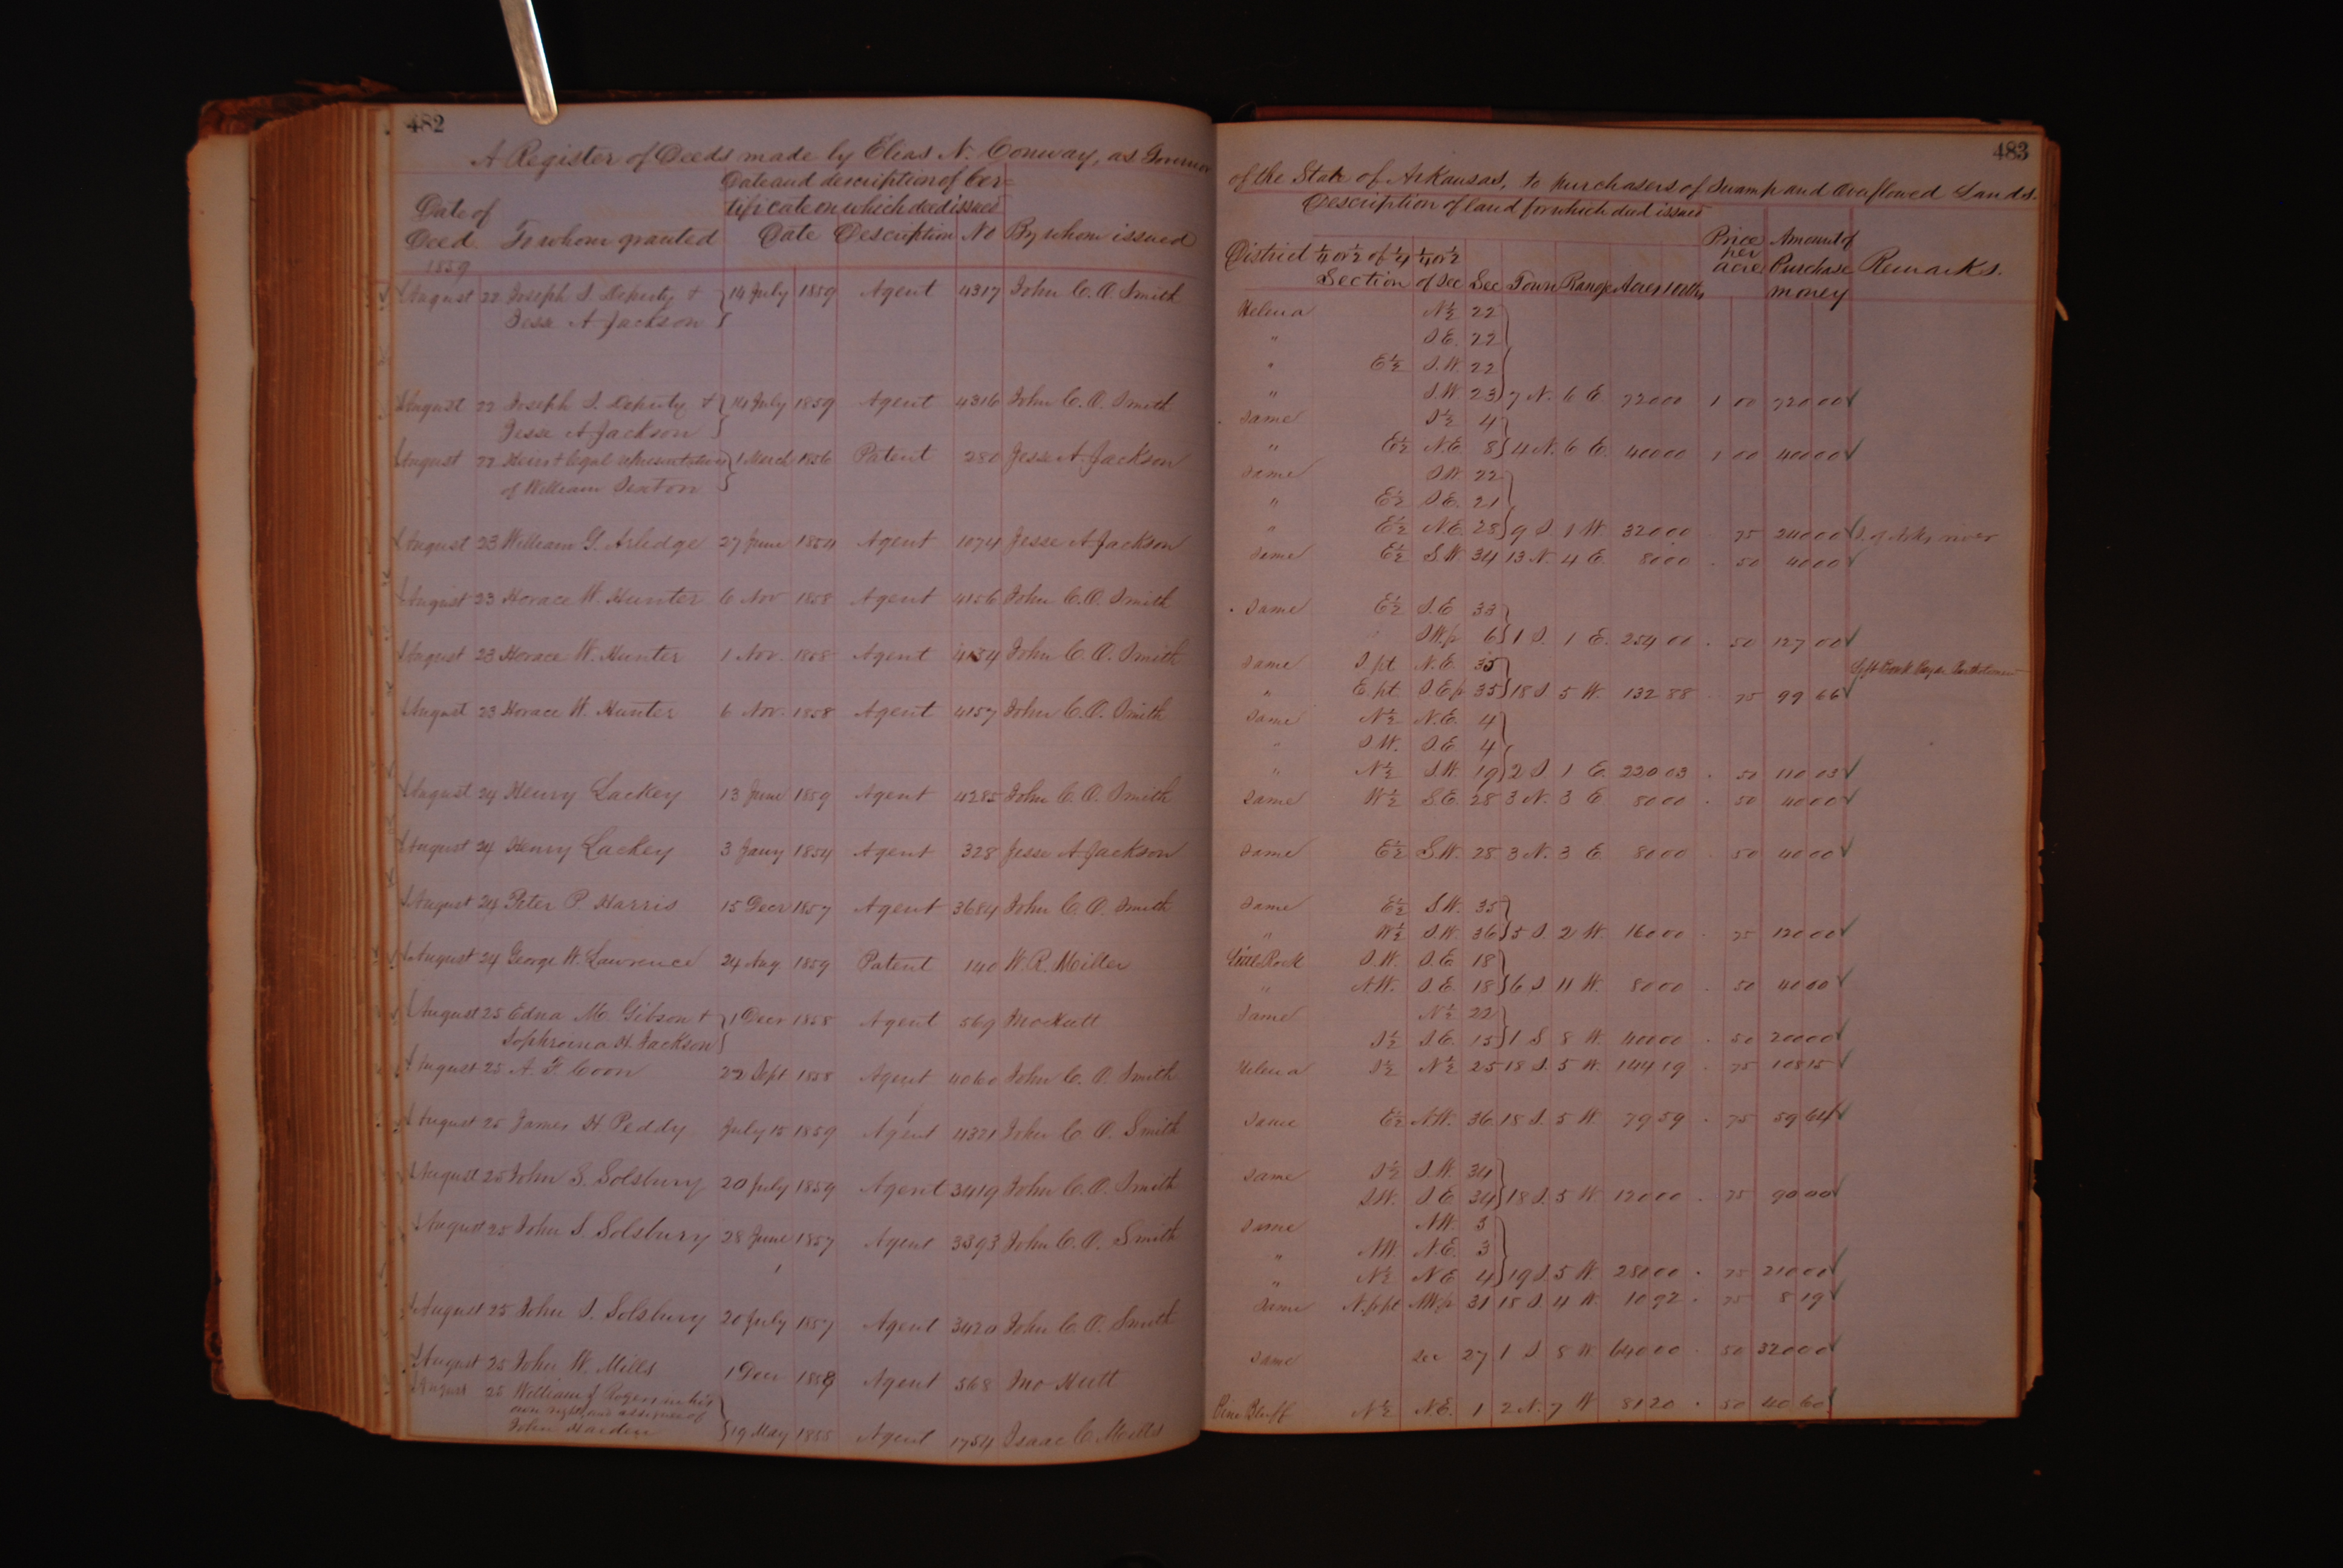 482
A Register of Deeds made by Elias N. Conway, as Governor
Date and description of Cer=
tificate on which deed issued
Date of
Deed To whom granted Date Description No By whom issued
1859
August 22 Joseph S. Deputy + 14 July 1859 Agent 4317 John C. O. Smith
Jesse A Jackson
August 22 Joseph S. Deputy + 14 July 1859 Agent 4316 John C. O. Smith
Jesse A Jackson
August 22 Heirs + legal representatives 1 March 1856 Patent 280 Jesse A Jackson
of William Sexton
August 23 William G. Arledge 27 June 1854 Agent 1074 Jesse A Jackson
August 23 Horace W. Hunter 6 Nov 1858 Agent 4156 John C. O. Smith
August 23 Horace W. Hunter 1 Nov. 1858 Agent 4134 John C. O. Smith
August 23 Horace W. Hunter 6 Nov. 1858 Agent 4157 John C. O. Smith
August 24 Henry Lackey 13 June 1859 Agent 4285 John C. O. Smith
August 24 Henry Lackey 3 Jany 1854 Agent 328 Jesse A Jackson
August 24 Peter P. Harris 15 Decr 1857 Agent 3684 John C. O. Smith
August 24 George W. Lawrence 24 Aug 1859 Patent 140 W. R. Miller
August 25 Edna M. Gibson + 1 Decr 1858 Agent 569 Jno Hutt
Sophronia H. Jackson
August 25 A. F. Coon 22 Sept 1858 Agent 4060 John C. O. Smith
August 25 James H. Peddy July 15 1859 Agent 4321 John C. O. Smith
August 25 John S. Solsbury 20 July 1859 Agent 3419 John C. O. Smith
August 25 John S. Solsbury 28 June 1857 Agent 3393 John C. O. Smith
August 25 John S. Solsbury 20 July 1857 Agent 3420 John C. O. Smith
August 25 John W. Mills 1 Decr 1858 Agent 568 Jno Hutt
August 25 William J. Rogers in his
own right and assignee of
John Harden 19 May 1855 Agent 1754 Isaac C Mills
483
of the State of Arkansas, to purchasers of Swamp and Overflowed Lands.
Description of land for which deed issued
District ¼ or ½ of ¼ ¼ or ½ Price Amount of
Section of Sec Sec Town Range Acres 100ths per acre Purchase Remarks.
money
Helena N½ 22
" S.E. 22
" E½ S.W. 22
" S.W. 23 7 N. 6 E. 720 00 1 00 720 00
Same S½ 4
" E½ N.E. 8 4 N. 6 E. 400 00 1 00 400 00
Same S.W. 22
" E½ S.E. 21
" E½ N.E. 28 9 S. 1 W. 320 00 75 240 00 S. of Arks. river
Same E½ S.W. 34 13 N. 4 E. 80 00 50 40 00
Same E½ S.E 33
S.W.p 6 1 S. 1 E. 254 00 50 127 00
Same S. pt N.E. 35 Left Bank Bayou Bartholomew
" E. pt. S.Ep 35 18 S. 5 W. 132 88 75 99 66
Same N½ N.E. 4
" S.W. S.E. 4
" N½ S.W. 19 2 S 1 E. 220 03 50 110 03
Same W½ S.E. 28 3 N. 3 E 80 00 50 40 00
Same E½ S.W. 28 3 N. 3 E 80 00 50 40 00
Same E½ S.W. 35
" W½ S.W. 36 5 S. 2 W. 160 00 75 120 00
Little Rock S.W. S.E 18
" N.W. S.E. 18 6 S 11 W. 80 00 50 40 00
Same N½ 22
S½ S.E. 15 1 S 8 W. 400 00 50 200 00
Helena S½ N½ 25 18 S. 5 W. 144 19 75 108 15
Same E½ N.W. 36 18 S. 5 W. 79 59 75 59 64
Same S½ S.W. 34
S.W. S.E. 34 18 S. 5 W 120 00 75 90 00
Same N.W. 3
" N.W. N.E. 3
" N½ N.E 4 19 S. 5 W. 280 00 75 210 00
Same N.p pt N.W.p 31 18 S. 4 W. 10 92 75 8 19
Same Sec 27 1 S 8 W. 640 00 50 320 00
Pine Bluff N½ N.E. 1 2 N. 7 W 81 20 50 40 60